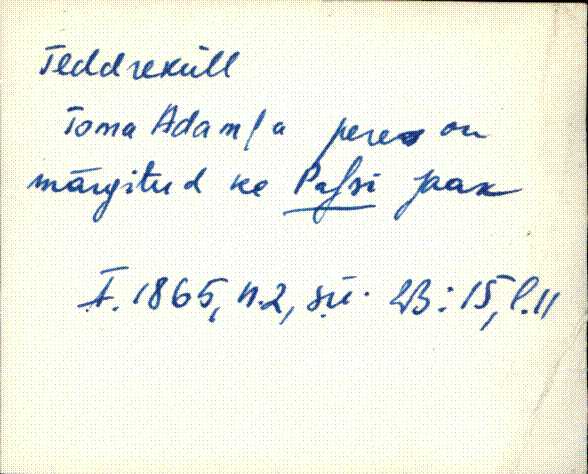 Teddreküll
Toma Adam/a peres on
märgitud ka Paſsi Jaak
F. 1865, n. 2, sü. EB: 15, l. 11